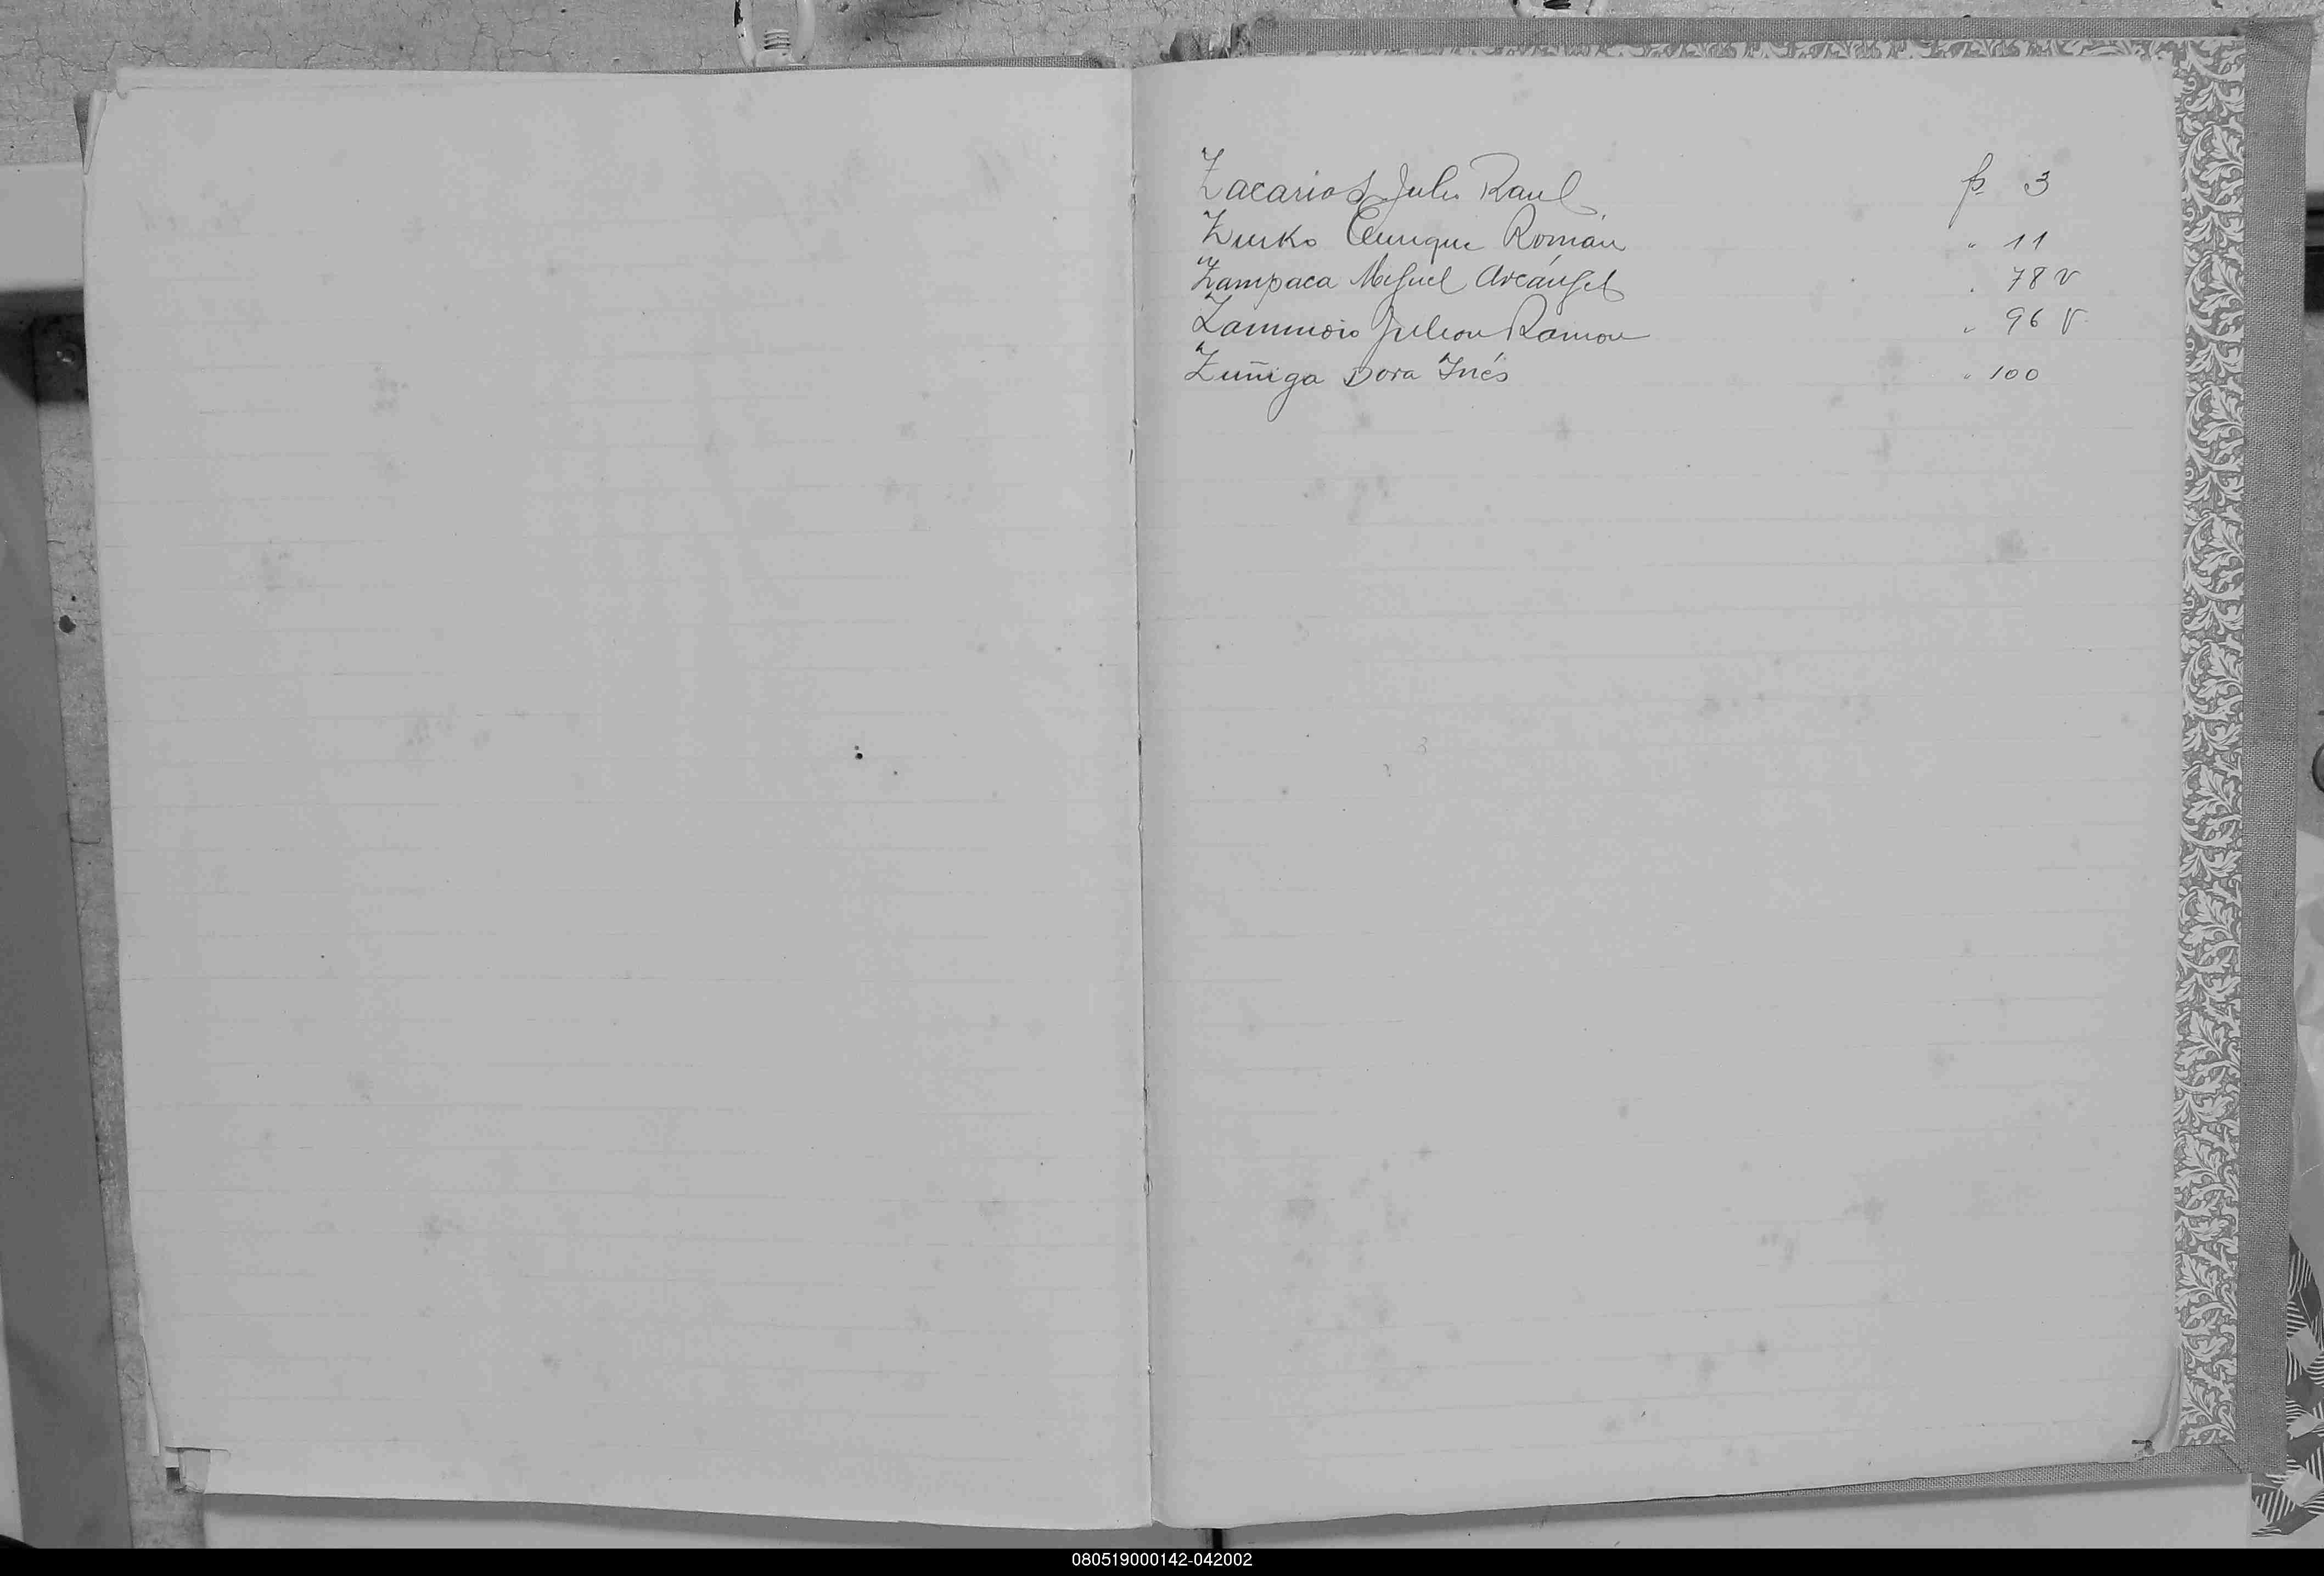 Zacarias Julio Raul p. 3
Zurko Enrique Román " 11
Zampaca Miguel Arcángel " 78 v
Zammoio Julian Ramon " 96 v
Zuñiga Dora Inés " 100
080519000142-042002